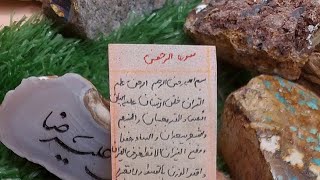 سورة الرحمن
بسم الله الرحمن الرحیم الرحمن علم
القرآن خلق الانسان علمه البیان
الشمس والقمر بحسبان والنجم
والشجر یسجدان والسماء رفعها
ووضع المیزان الا تطغوا فی المیزان
واقیموا الوزن بالقسط ولا تخسروا
علیرضا